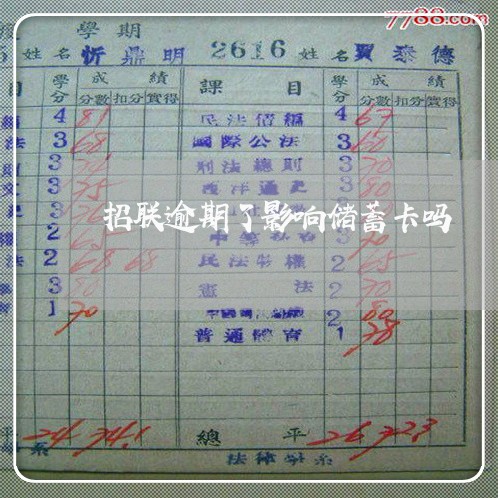 7788.com
學期
姓名 忻鼎明 2616 姓名 賈泰德
目 學分 成績 課目 學分 成績
分數 扣分 實得 分數 扣分 實得
4 81 民法債編 4 67
法 3 68 國際公法 3 60
3 刑法總則 3 70
3 75 西洋通史 3 80
3
招联逾期了影响储蓄卡吗
2 3 70
法 2 68 68 民法物權 2 65
3 80 憲法 2 70
1 70 2 80
普通體育 1 78
平 24 74.1 總平 26 72.3
系 法律學系